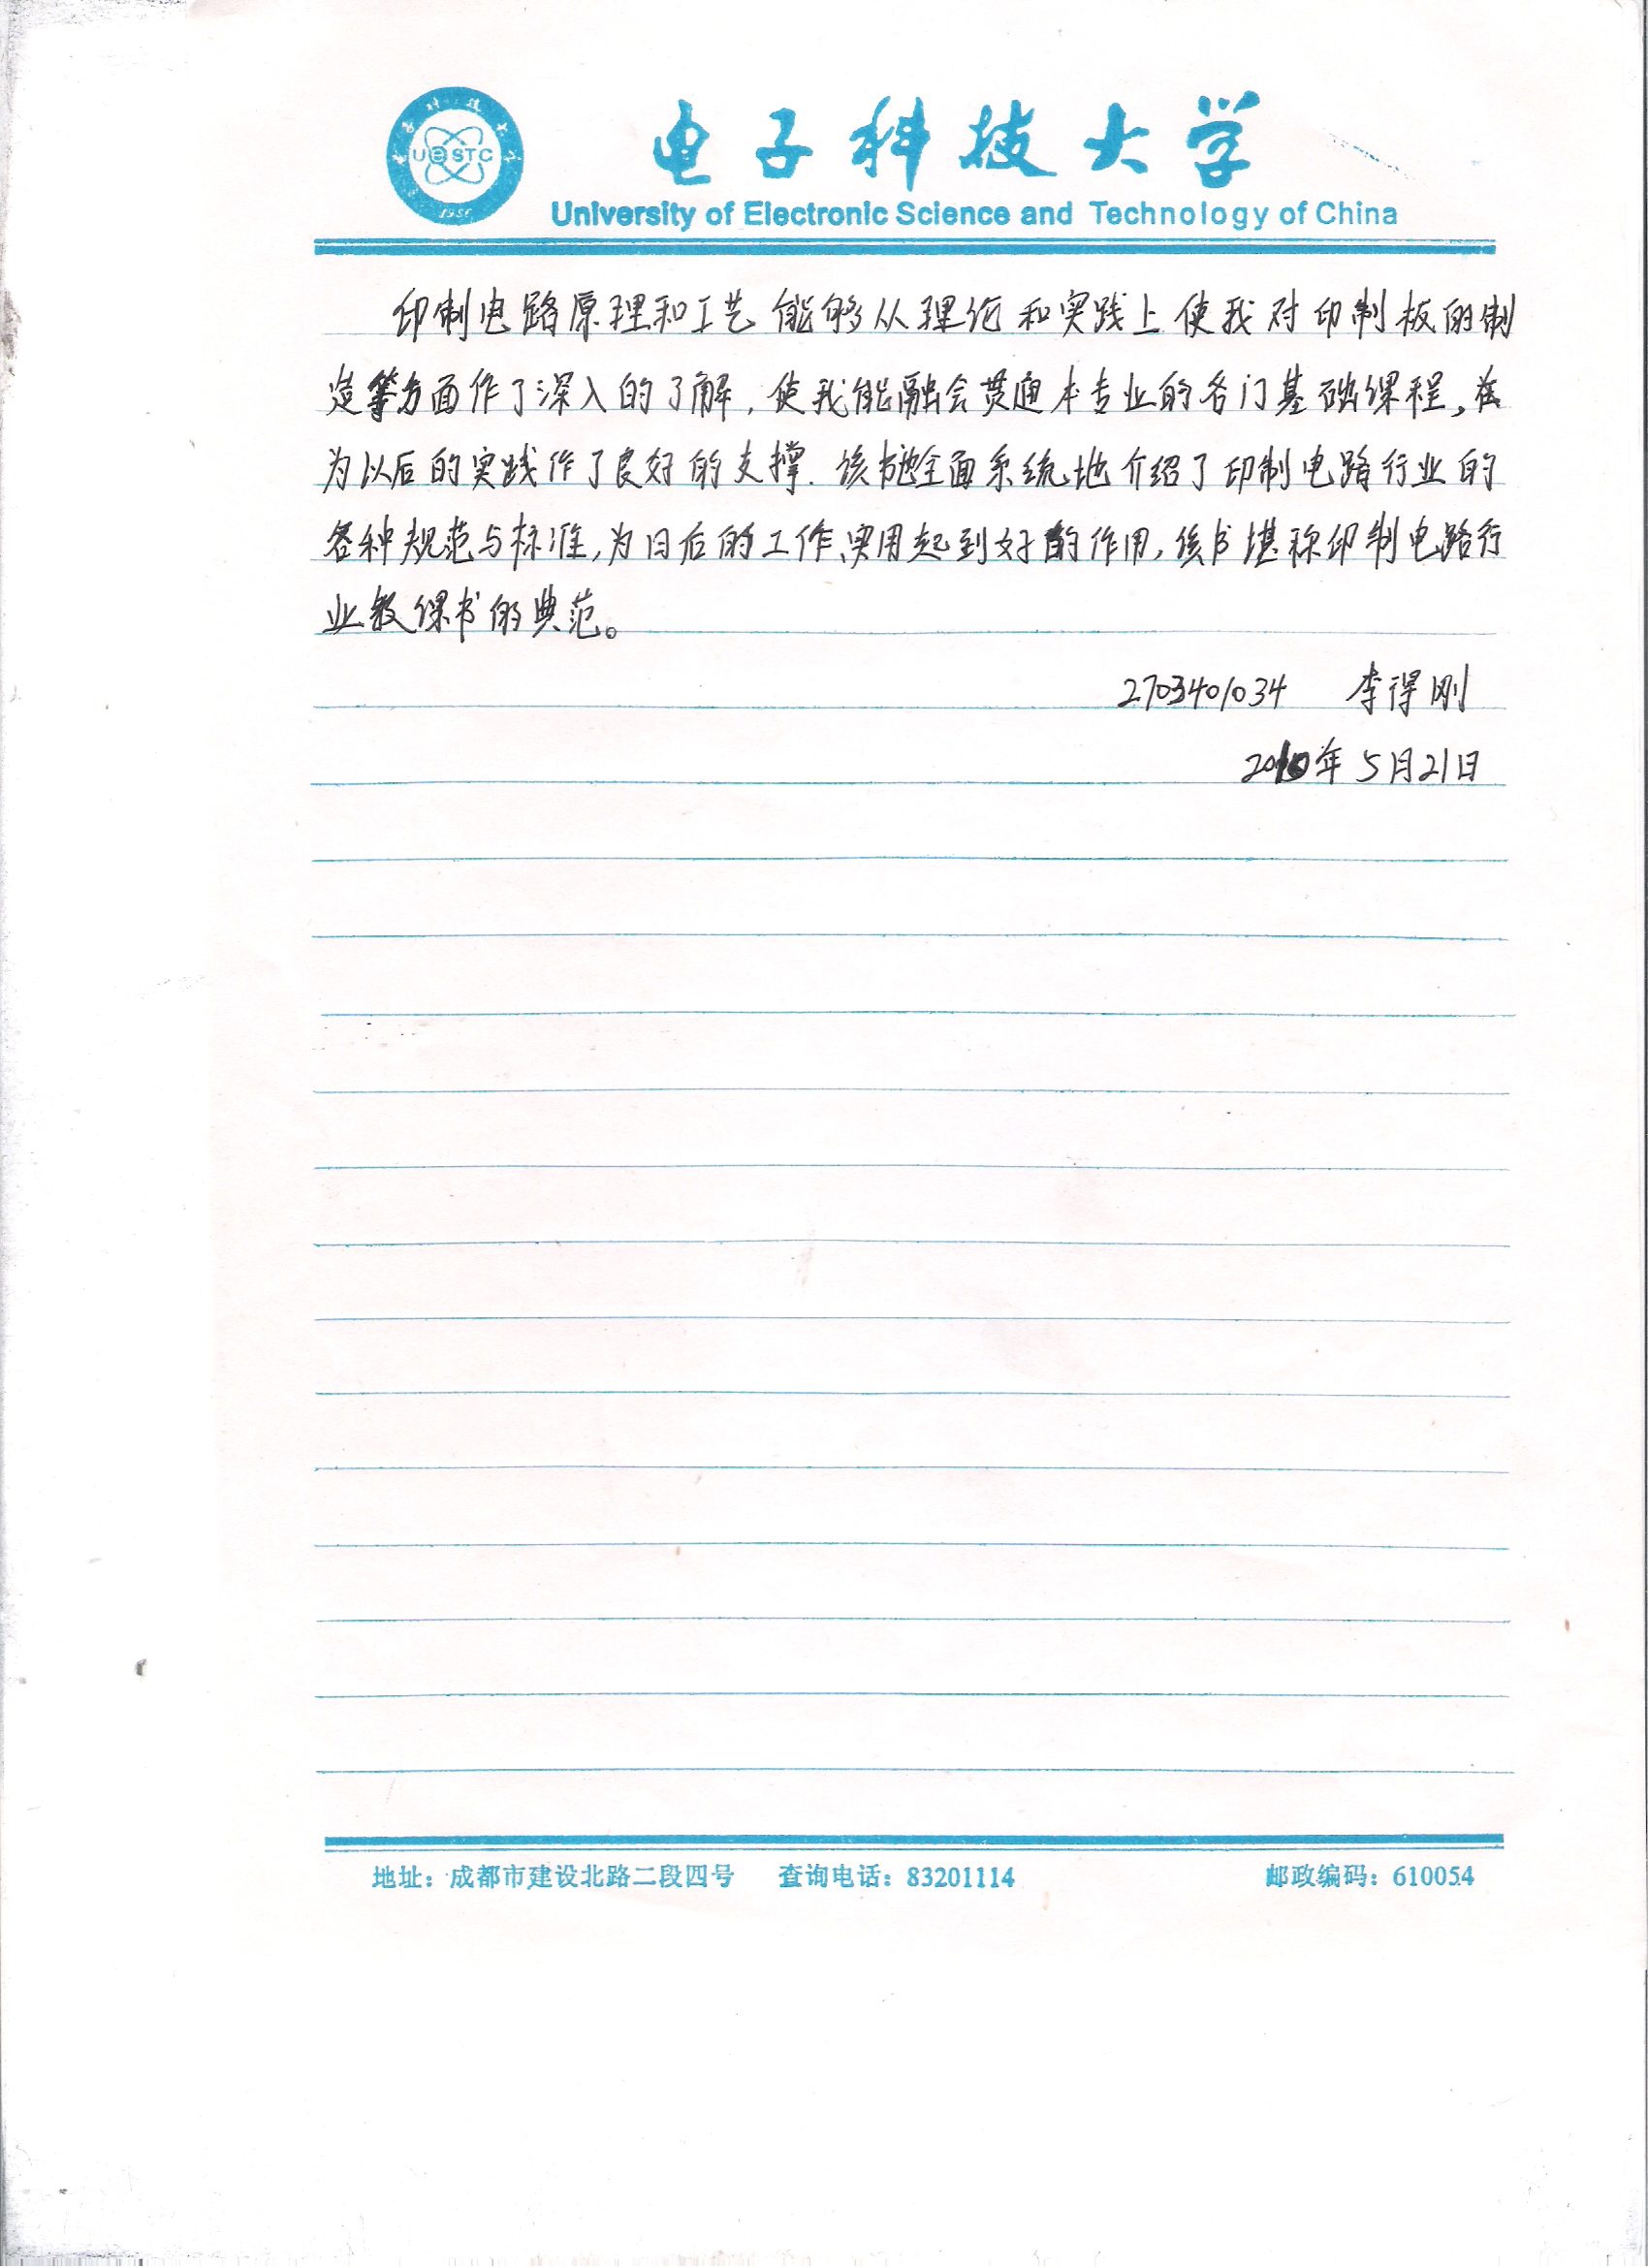 UESTC
1956
电子科技大学
University of Electronic Science and Technology of China
印制电路原理和工艺能够从理论和实践上使我对印制板的制
造等方面作了深入的了解,使我能融会贯通本专业的各门基础课程,在
为以后的实践作了良好的支撑.该书也全面系统地介绍了印制电路行业的
各种规范与标准,为日后的工作、实用起到好的作用,该书堪称印制电路行
业教课书的典范。
2703401034 李得刚
2010年5月21日
地址:成都市建设北路二段四号 查询电话:83201114 邮政编码:610054